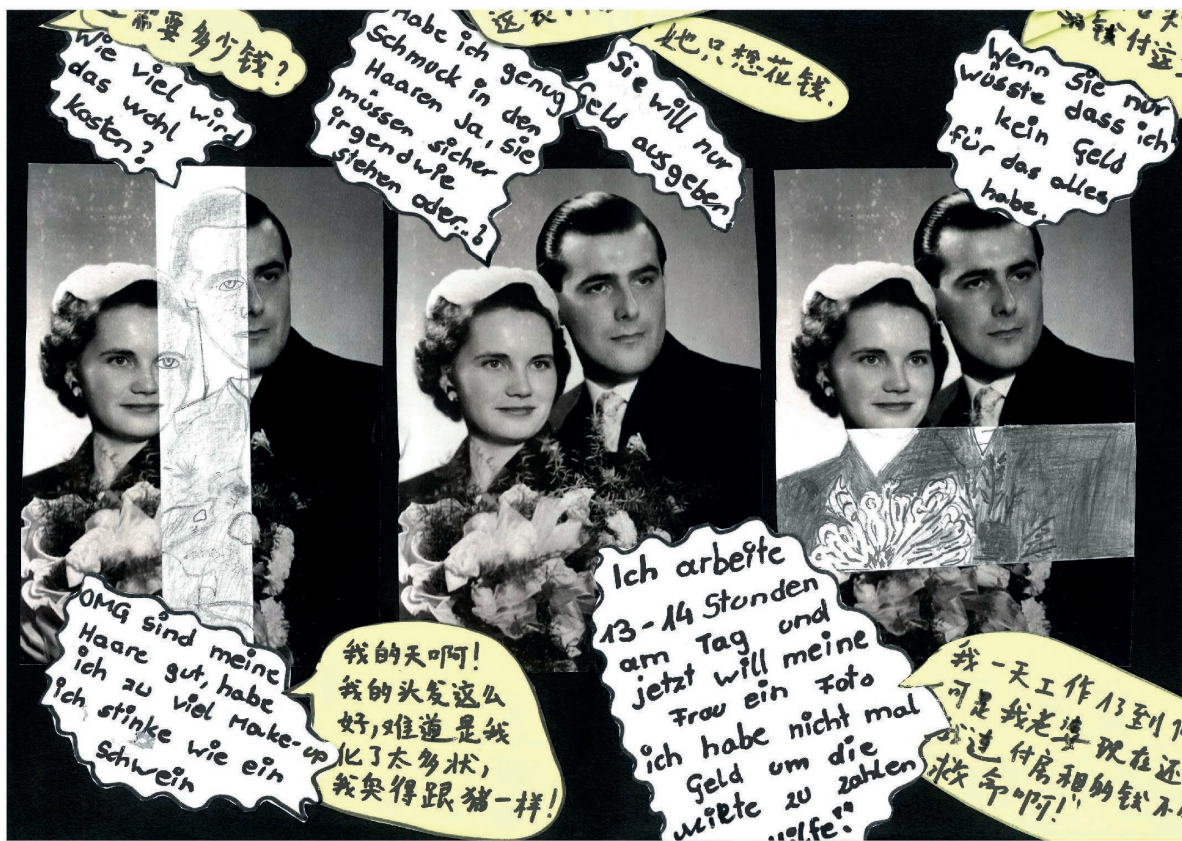 需要多少钱?
Wie viel wird
das wohl
kosten?
Habe ich genug
Schmuck in den
Haaren Ja, sie
müssen sicher
irgendwie
stehen oder..?
她只想花钱.
Sie will nur
Geld ausgeben
钱付这
Wenn Sie nur
wüsste dass ich
kein Geld
für das alles
habe.
OMG sind meine
Haare gut, habe
ich zu viel Make-up
ich stinke wie ein
Schwein
我的天啊!
我的头发这么
好,难道是我
化了太多状,
我臭得跟猪一样!
Ich arbeite
13-14 Stunden
am Tag und
jetzt will meine
Frau ein Foto
ich habe nicht mal
Geld um die
Miete zu zahlen
Hilfe!"
我一天工作13到1
可是我老婆现在还
我连付房租的钱不
救命啊!